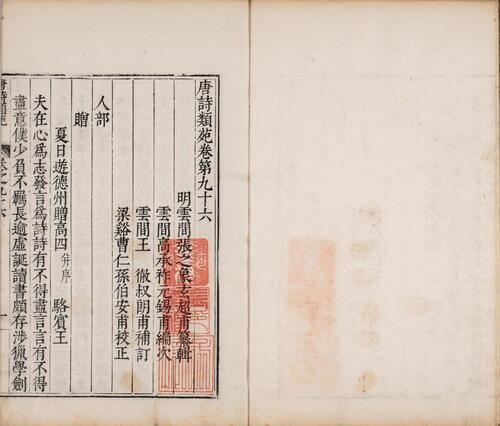 唐詩類苑卷第九十六
明雲間張之象玄超甫纂輯
雲間高承祚元錫甫編次
雲間王 徹叔朗甫補訂
梁谿曹仁孫伯安甫校正
人部
贈
夏日遊德州贈高四 并序 駱賓王
夫在心爲志發言爲詩詩有不得盡言言有不得
盡意僕少負不羈長逾虛誕讀書頗存涉獵學劍
唐詩類苑 卷之九十六 一